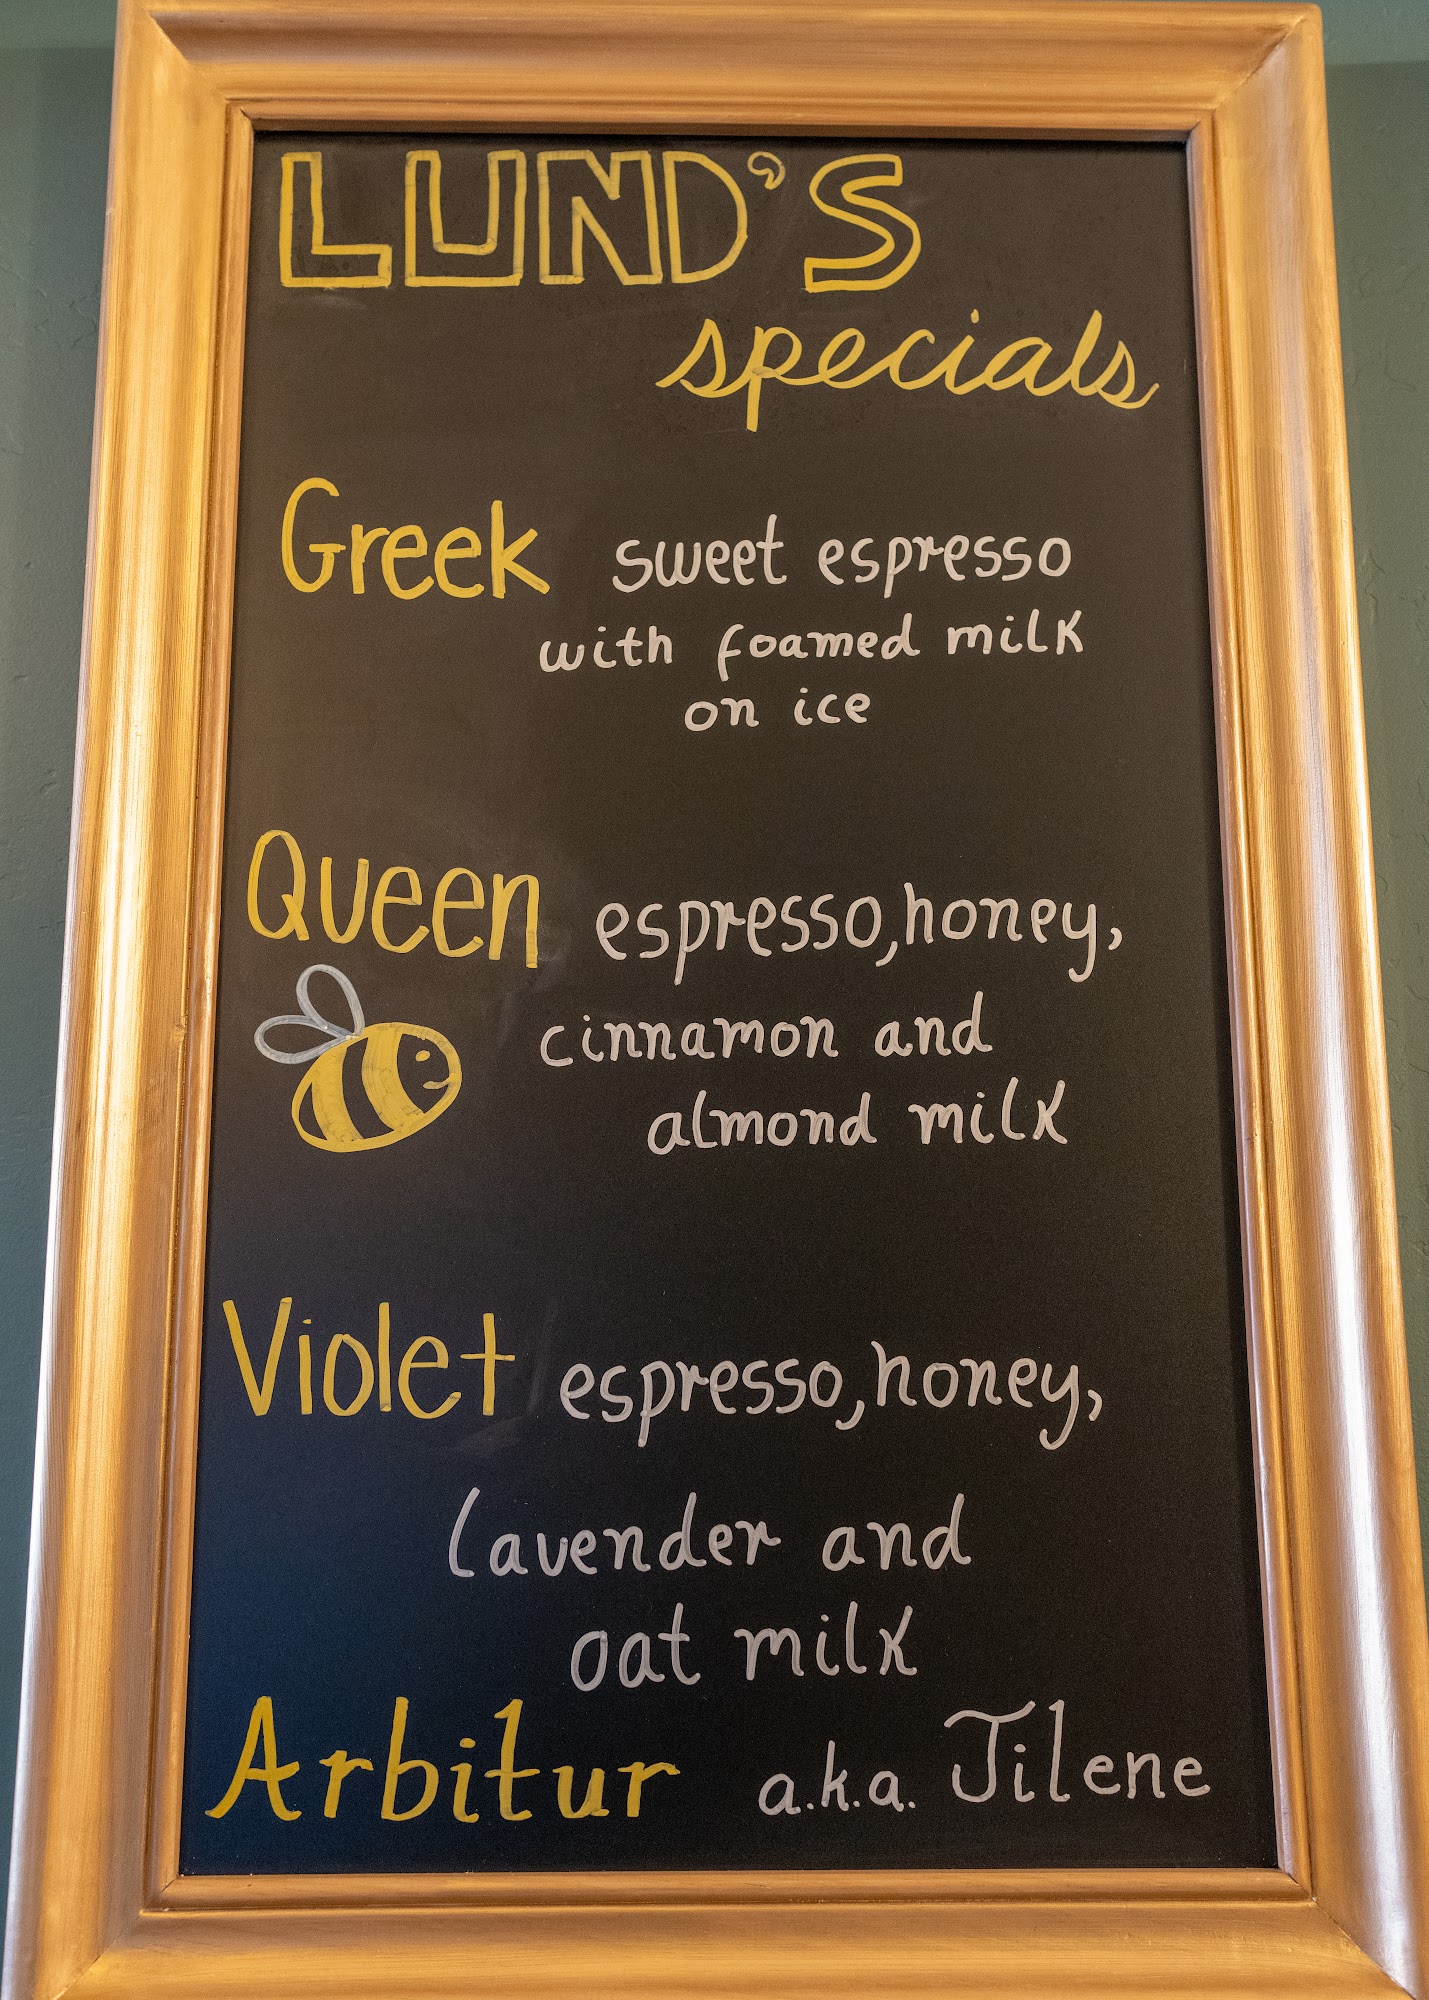 LUND'S
specials
Greek sweet espresso
with foamed milk
on ice
Queen espresso, honey,
cinnamon and
almond milk
Violet espresso, honey,
lavender and
oat milk
Arbitur a.k.a. Jilene